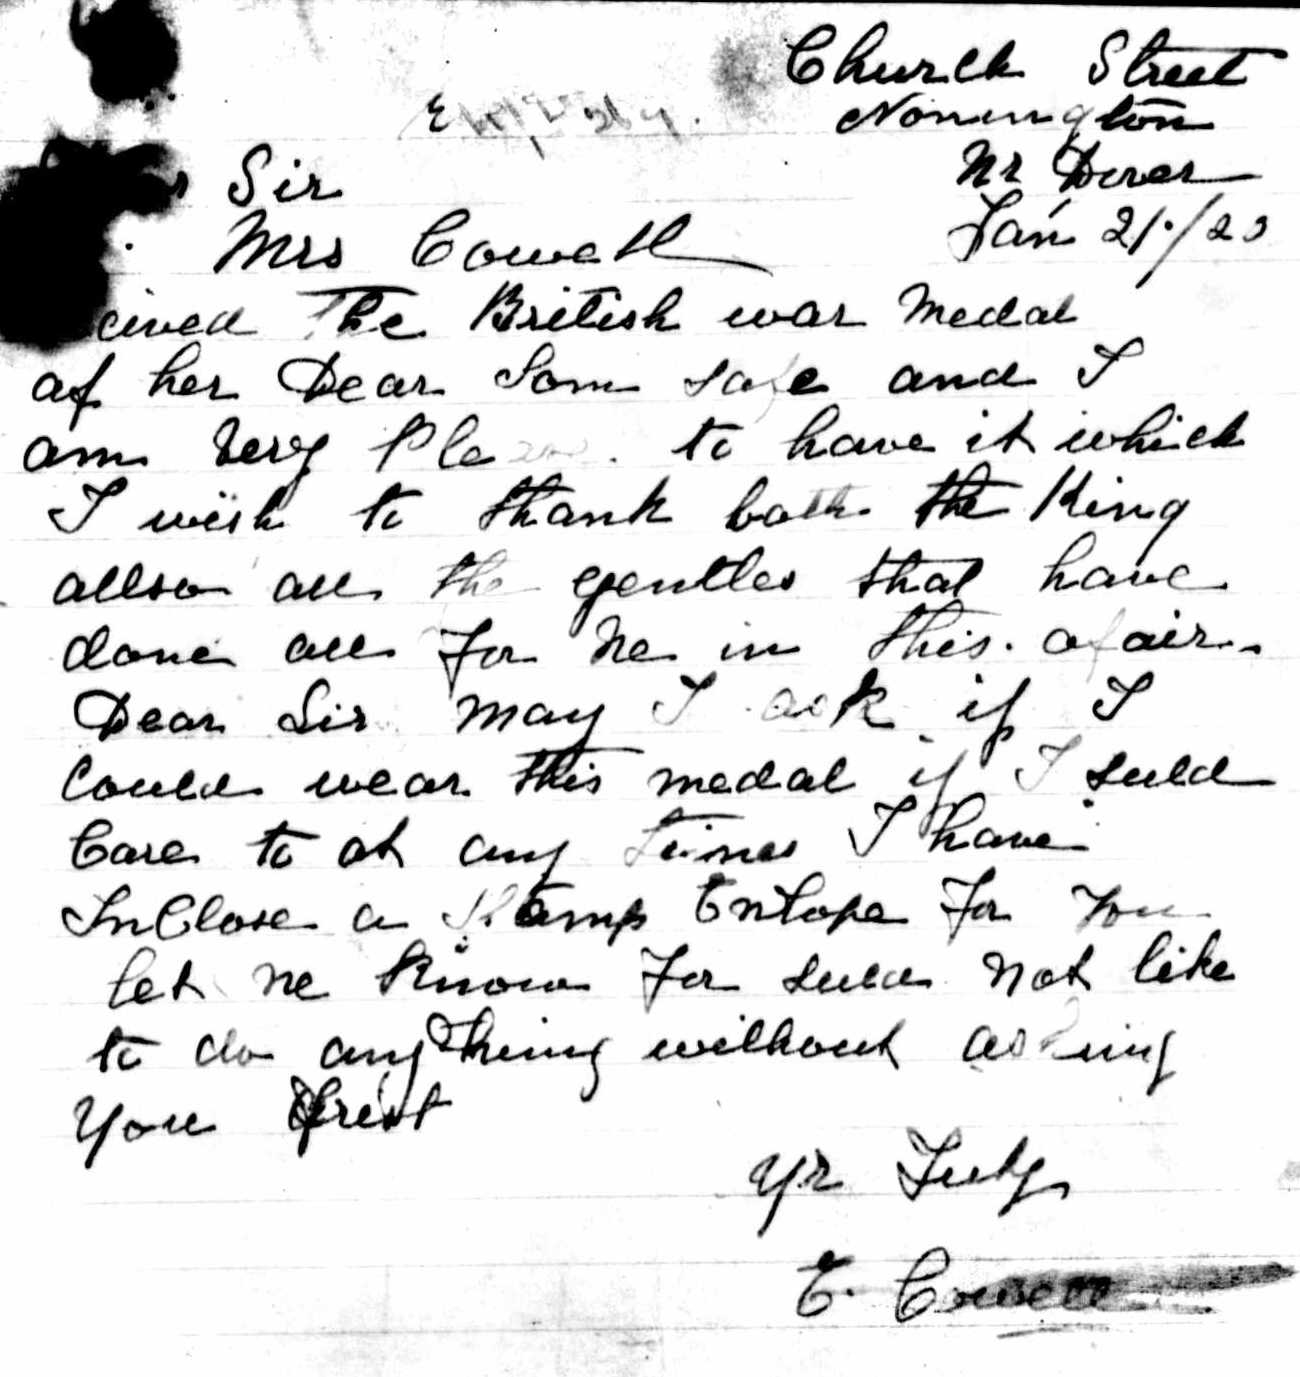 Church Street
Nonington
Nr Dover
Jan 21/23
Sir
Mrs Cowell
cived The British war Medal
of her Dear Son safe and I
am very Ple to have it which
I wish to thank both the King
allso all the gentles that have
done all for me in this. afair.
Dear Sir may I ask if I
Could wear this medal if I suld
Care to at any times I have
InClose a Stamp Enlope for you
let me know for suld not like
to do anything without asking
you frist
yr Tuly
E. Cowell